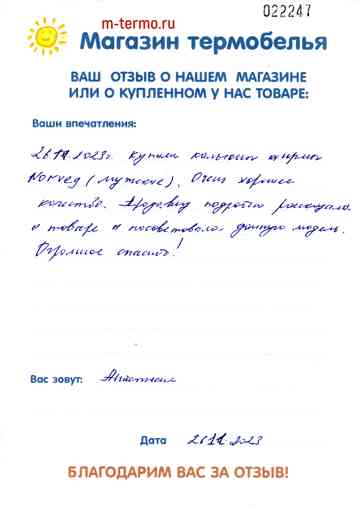 022247
m-termo.ru
Магазин термобелья
ВАШ ОТЗЫВ О НАШЕМ МАГАЗИНЕ
ИЛИ О КУПЛЕННОМ У НАС ТОВАРЕ:
Ваши впечатления:
26.11.2023г. купили кальсоны фирмы
Norveg (мужские). Очень хорошее
качество. Продавец подробно рассказала
о товаре и посоветовала данную модель.
Огромное спасибо!
Вас зовут: Анастасия
Дата 26.11.2023
БЛАГОДАРИМ ВАС ЗА ОТЗЫВ!